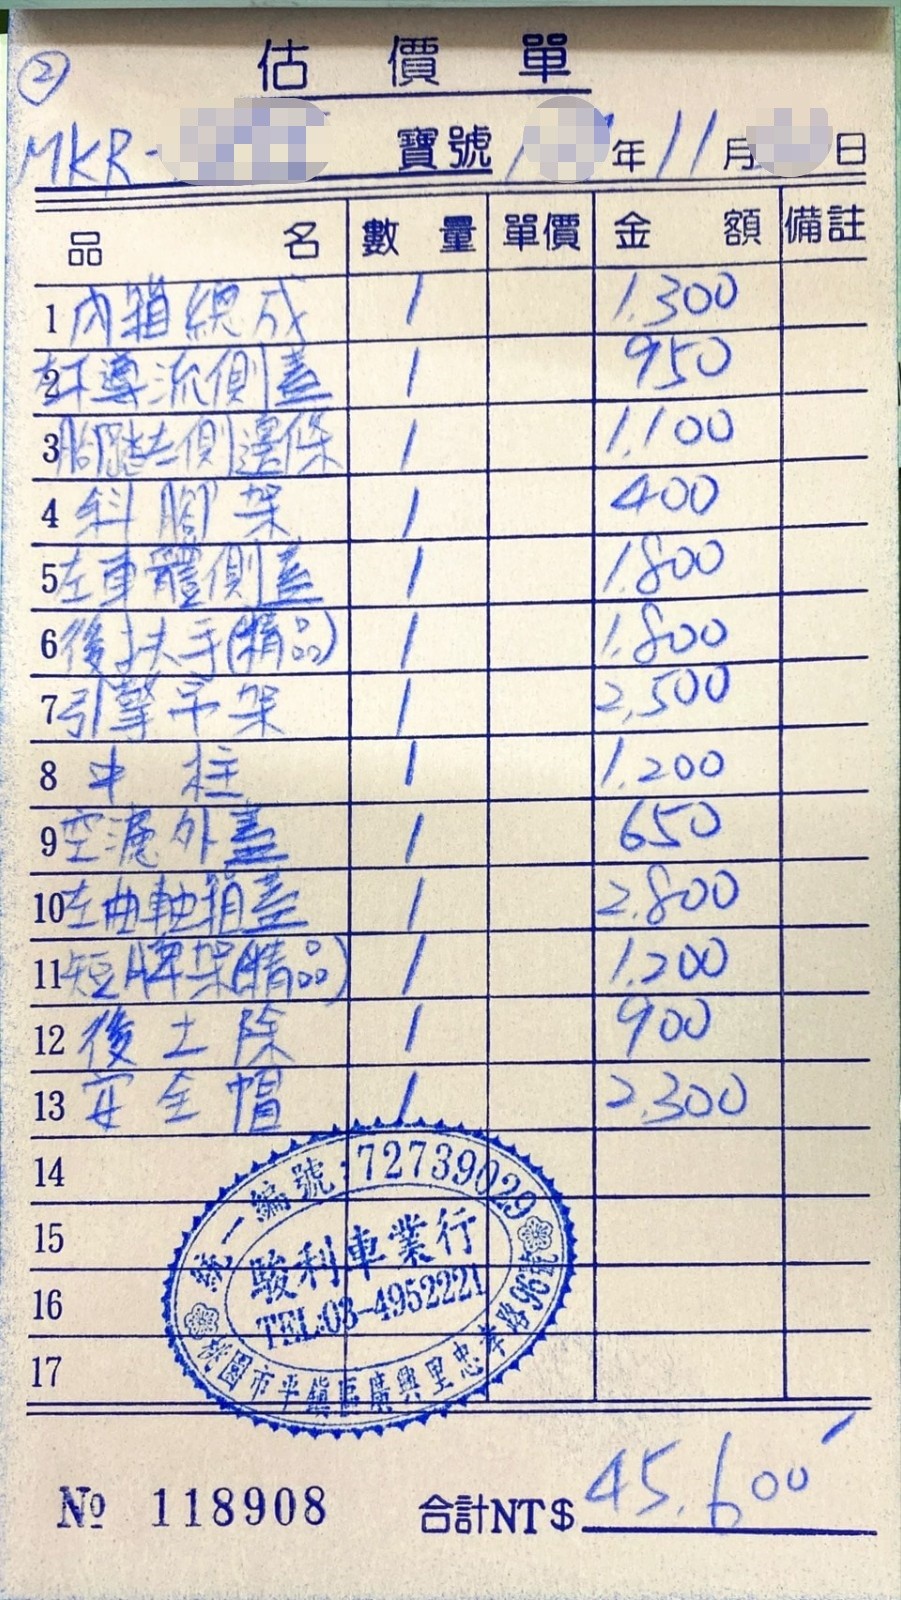 ②
估價單
MKR- 寶號 1 年 11 月 日
品名 數量 單價 金額 備註
1 內箱總成 1 1.300
2 導流側蓋 1 950
3 腳踏左側邊條 1 1.100
4 斜腳架 1 400
5 左車體側蓋 1 1.800
6 後扶手(精品) 1 1.800
7 引擎吊架 1 2,500
8 中柱 1 1.200
9 空濾外蓋 1 650
10 左曲軸箱蓋 1 2.800
11 短牌架(精品) 1 1.200
12 後土除 1 900
13 安全帽 1 2.300
14
15
16
17
統一編號:72739029
駿利車業行
TEL:03-4952221
桃園市平鎮區廣興里忠孝路96號
№ 118908 合計NT$ 45.600